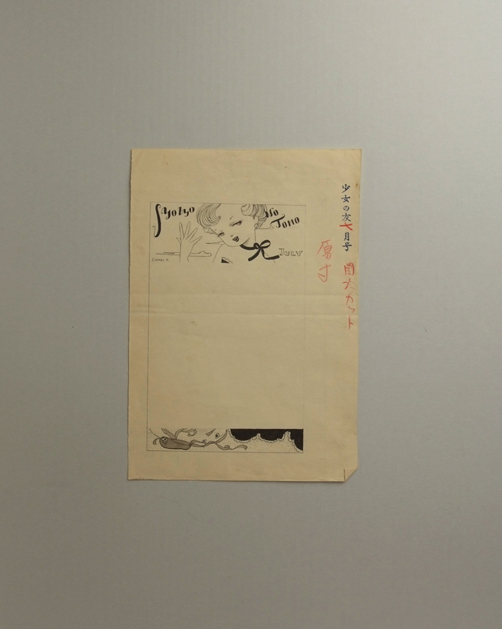 Syojyo
No
Tomo
JULY
少女の友七月号
目次カット
原寸